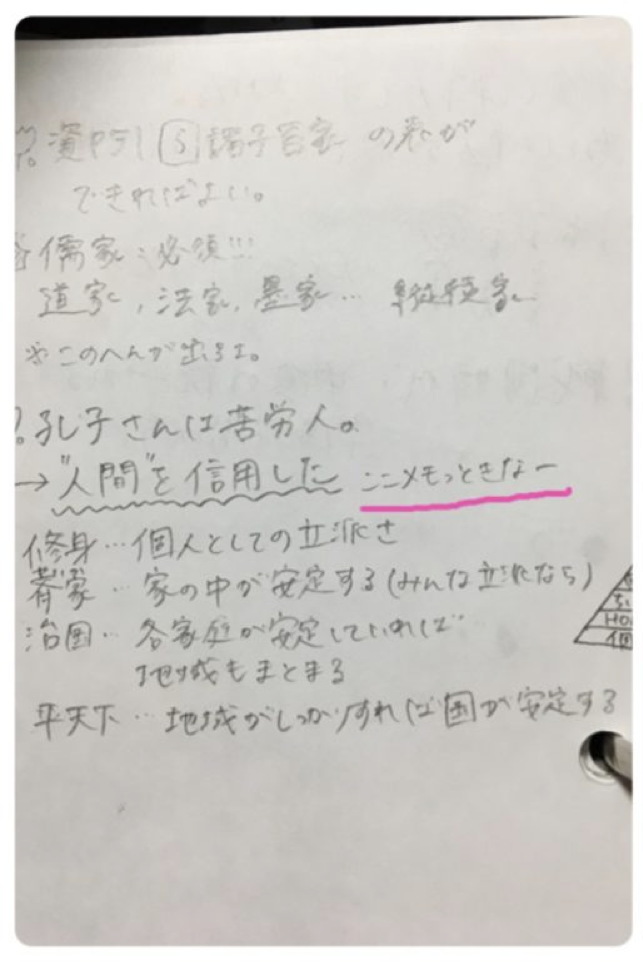 資P51 5 諸子百家の表が
できればよい。
儒家:必須!!!
道家,法家,墨家… 縦横家
※このへんが出るよ。
孔子さんは苦労人。
→"人間"を信用した ここメモっときなー
修身…個人としての立派さ
斉家…家の中が安定する(みんな立派なら)
治国…各家庭が安定していれば
地域もまとまる
平天下…地域がしっかりすれば国が安定する
HO
個